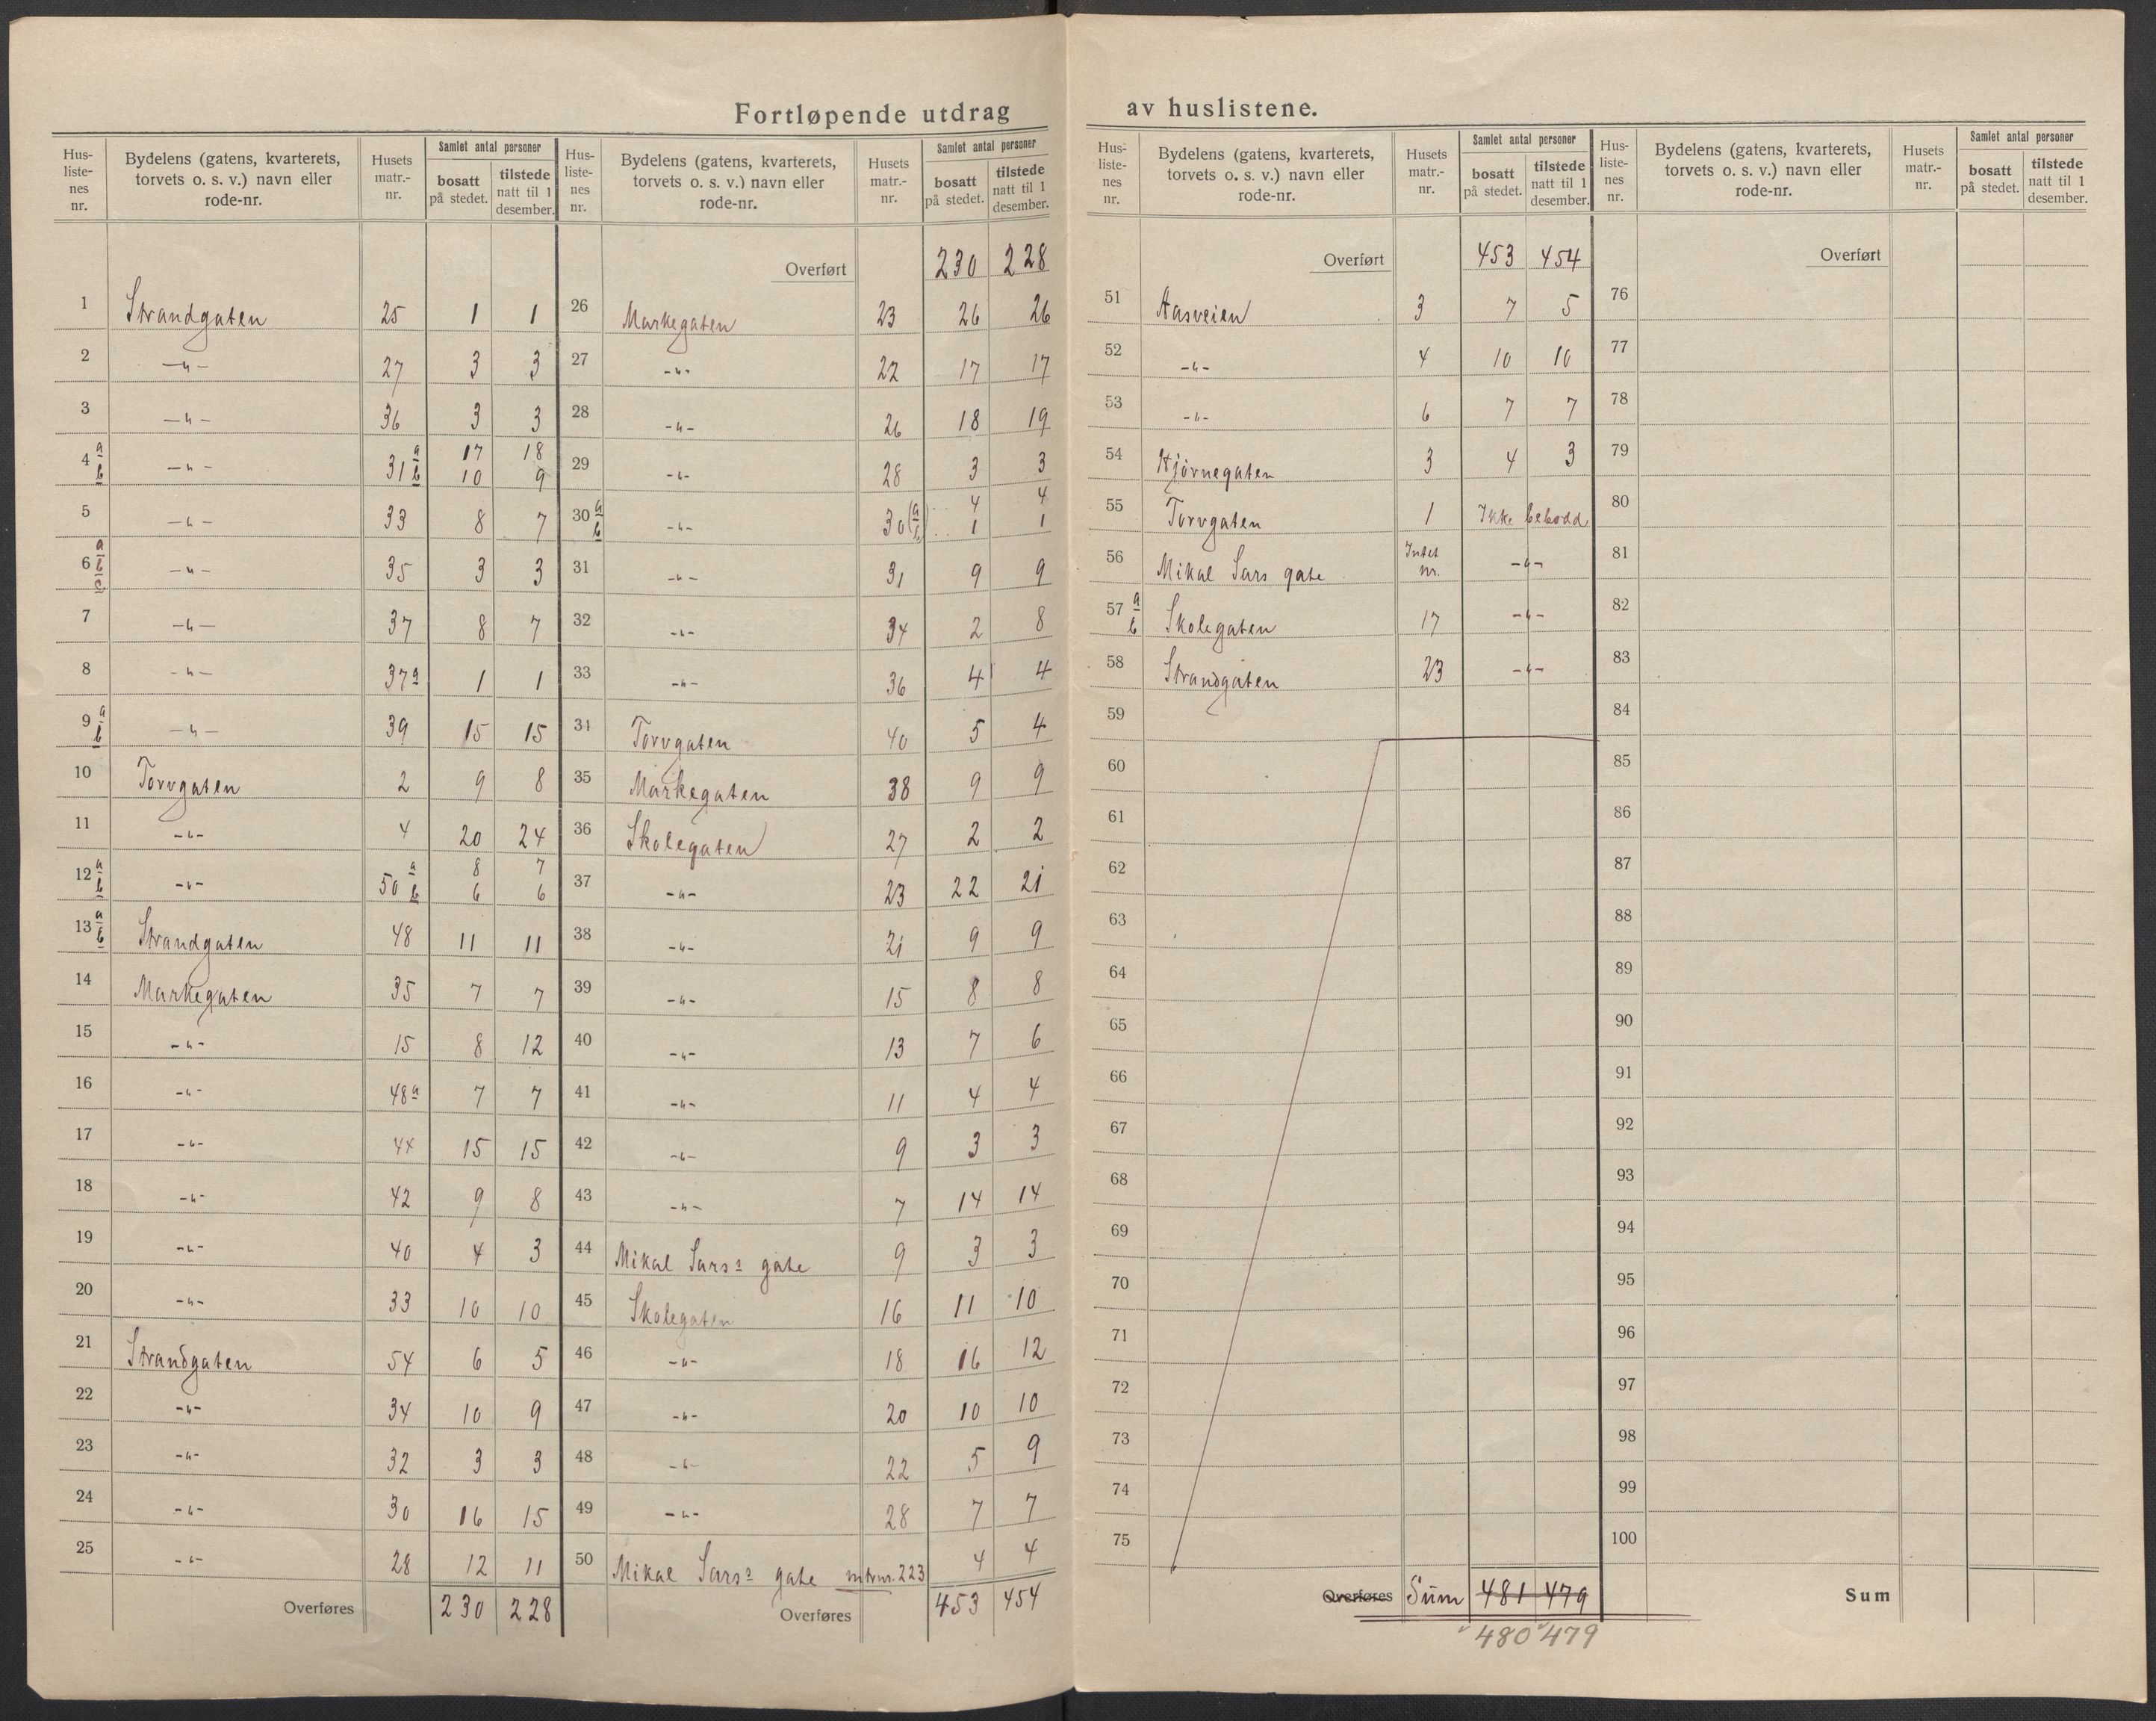 Fortløpende utdrag av huslistene.
Hus-listenes nr. | Bydelens (gatens, kvarterets, torvets o. s. v.) navn eller rode-nr. | Husets matr.-nr. | Samlet antal personer | bosatt på stedet. | tilstede natt til 1 desember.
1 Strandgaten 25 1 1
2 -"- 27 3 3
3 -"- 36 3 3
4 a b -"- 31 a b 17 18
10 9
5 -"- 33 8 7
6 a b c -"- 35 3 3
7 -"- 37 8 7
8 -"- 37a 1 1
9 a b -"- 39 15 15
10 Torvgaten 2 9 8
11 -"- 4 20 24
12 a b -"- 50 a b 8 7
6 6
13 a b Strandgaten 48 11 11
14 Markegaten 35 7 7
15 -"- 15 8 12
16 -"- 48a 7 7
17 -"- 44 15 15
18 -"- 42 9 8
19 -"- 40 4 3
20 -"- 33 10 10
21 Strandgaten 54 6 5
22 -"- 34 10 9
23 -"- 32 3 3
24 -"- 30 16 15
25 -"- 28 12 11
Overføres 230 228
Hus-listenes nr. | Bydelens (gatens, kvarterets, torvets o. s. v.) navn eller rode-nr. | Husets matr.-nr. | Samlet antal personer | bosatt på stedet. | tilstede natt til 1 desember.
Overført 230 228
26 Markegaten 23 26 26
27 -"- 22 17 17
28 -"- 26 18 19
29 -"- 28 3 3
30 a b -"- 30 (a b) 4 4
1 1
31 -"- 31 9 9
32 -"- 34 2 8
33 -"- 36 4 4
34 Torvgaten 40 5 4
35 Markegaten 38 9 9
36 Skolegaten 27 2 2
37 -"- 23 22 21
38 -"- 21 9 9
39 -"- 15 8 8
40 -"- 13 7 6
41 -"- 11 4 4
42 -"- 9 3 3
43 -"- 7 14 14
44 Mikal Sars's gate 9 3 3
45 Skolegaten 16 11 10
46 -"- 18 16 12
47 -"- 20 10 10
48 -"- 22 5 9
49 -"- 28 7 7
50 Mikal Sars's gate mtrnr. 223 4 4
Overføres 453 454
Hus-listenes nr. | Bydelens (gatens, kvarterets, torvets o. s. v.) navn eller rode-nr. | Husets matr.-nr. | Samlet antal personer | bosatt på stedet. | tilstede natt til 1 desember.
Overført 453 454
51 Aasveien 3 7 5
52 -"- 4 10 10
53 -"- 6 7 7
54 Hjørnegaten 3 4 3
55 Torvgaten 1 Ikke bebodd
56 Mikal Sars gate Intet nr. -"-
57 a b Skolegaten 17 -"-
58 Strandgaten 23 -"-
59
60
61
62
63
64
65
66
67
68
69
70
71
72
73
74
75
Overføres Sum 481 479
480 479
Hus-listenes nr. | Bydelens (gatens, kvarterets, torvets o. s. v.) navn eller rode-nr. | Husets matr.-nr. | Samlet antal personer | bosatt på stedet. | tilstede natt til 1 desember.
Overført
76
77
78
79
80
81
82
83
84
85
86
87
88
89
90
91
92
93
94
95
96
97
98
99
100
Sum